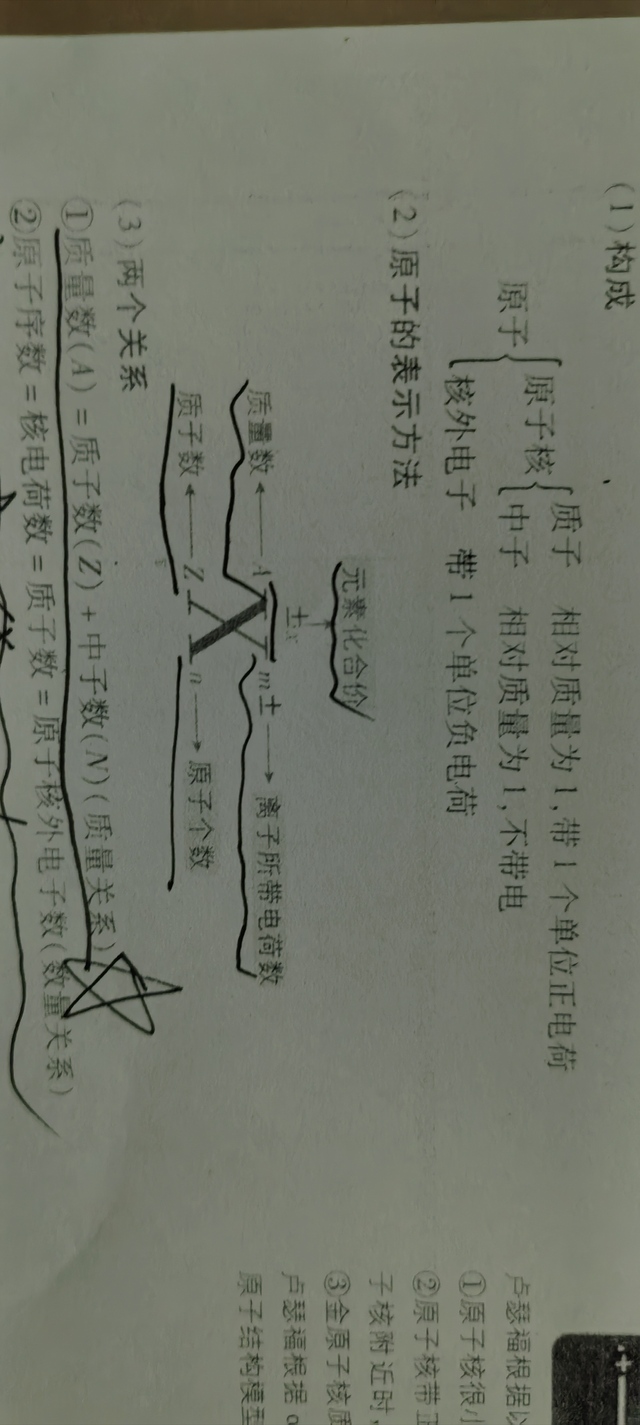 (1)构成
原子{原子核{质子 相对质量为1,带1个单位正电荷
中子 相对质量为1,不带电
核外电子 带1个单位负电荷
(2)原子的表示方法
元素化合价
±x
质量数←A X m±→离子所带电荷数
质子数←Z n→原子个数
(3)两个关系
①质量数(A)=质子数(Z)+中子数(N)(质量关系)
②原子序数=核电荷数=质子数=原子核外电子数(数量关系)
卢瑟福根据以
①原子核很小
②原子核带正
子核附近时,
③金原子核质
卢瑟福根据α
原子结构模型